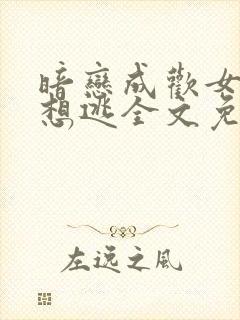 暗戀成歡女
想逃全文免
左远之風